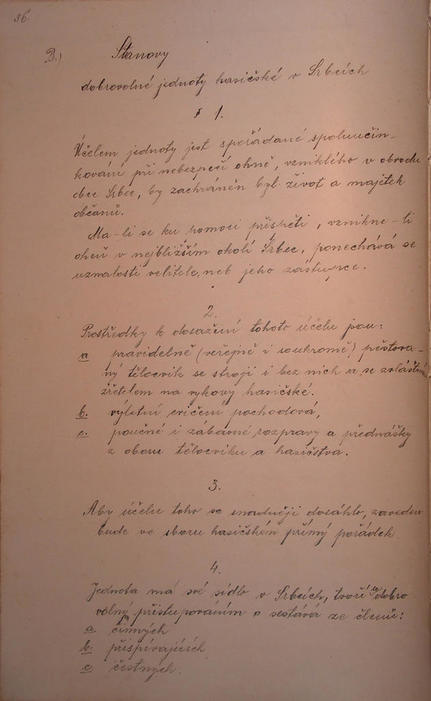 36.
B.) Stanovy
dobrovolné jednoty hasičské v Srbcích
§ 1.
Účelem jednoty jest spořádané spoluučin-
kování při nebezpečí ohně, vzniklého v obvodu
obce Srbec, by zachráněn byl život a majetek
občanů.
Má-li se ku pomoci přispěti, vznikne-li
oheň v nejbližším okolí Srbec, ponechává se
uznalosti velitele, neb jeho zástupce.
2.
Prostředky k dosažení tohoto účelu jsou:
a pravidelně (veřejně i soukromě) pěstova-
ný tělocvik se stroji i bez nich a se zvláštním
zřetelem na výkony hasičské.
b. výletní cvičení pochodová,
c. poučné i zábavné rozpravy a přednášky
z oboru tělocviku a hasičstva.
3.
Aby účelu toho se snadněji dosáhlo, zaveden
bude ve sboru hasičském přímý pořádek
4.
Jednota má své sídlo v Srbcích, tvoří se dobro
volným přistupováním a sestává ze členů:
a činných
b. přispívajících
c čestných.